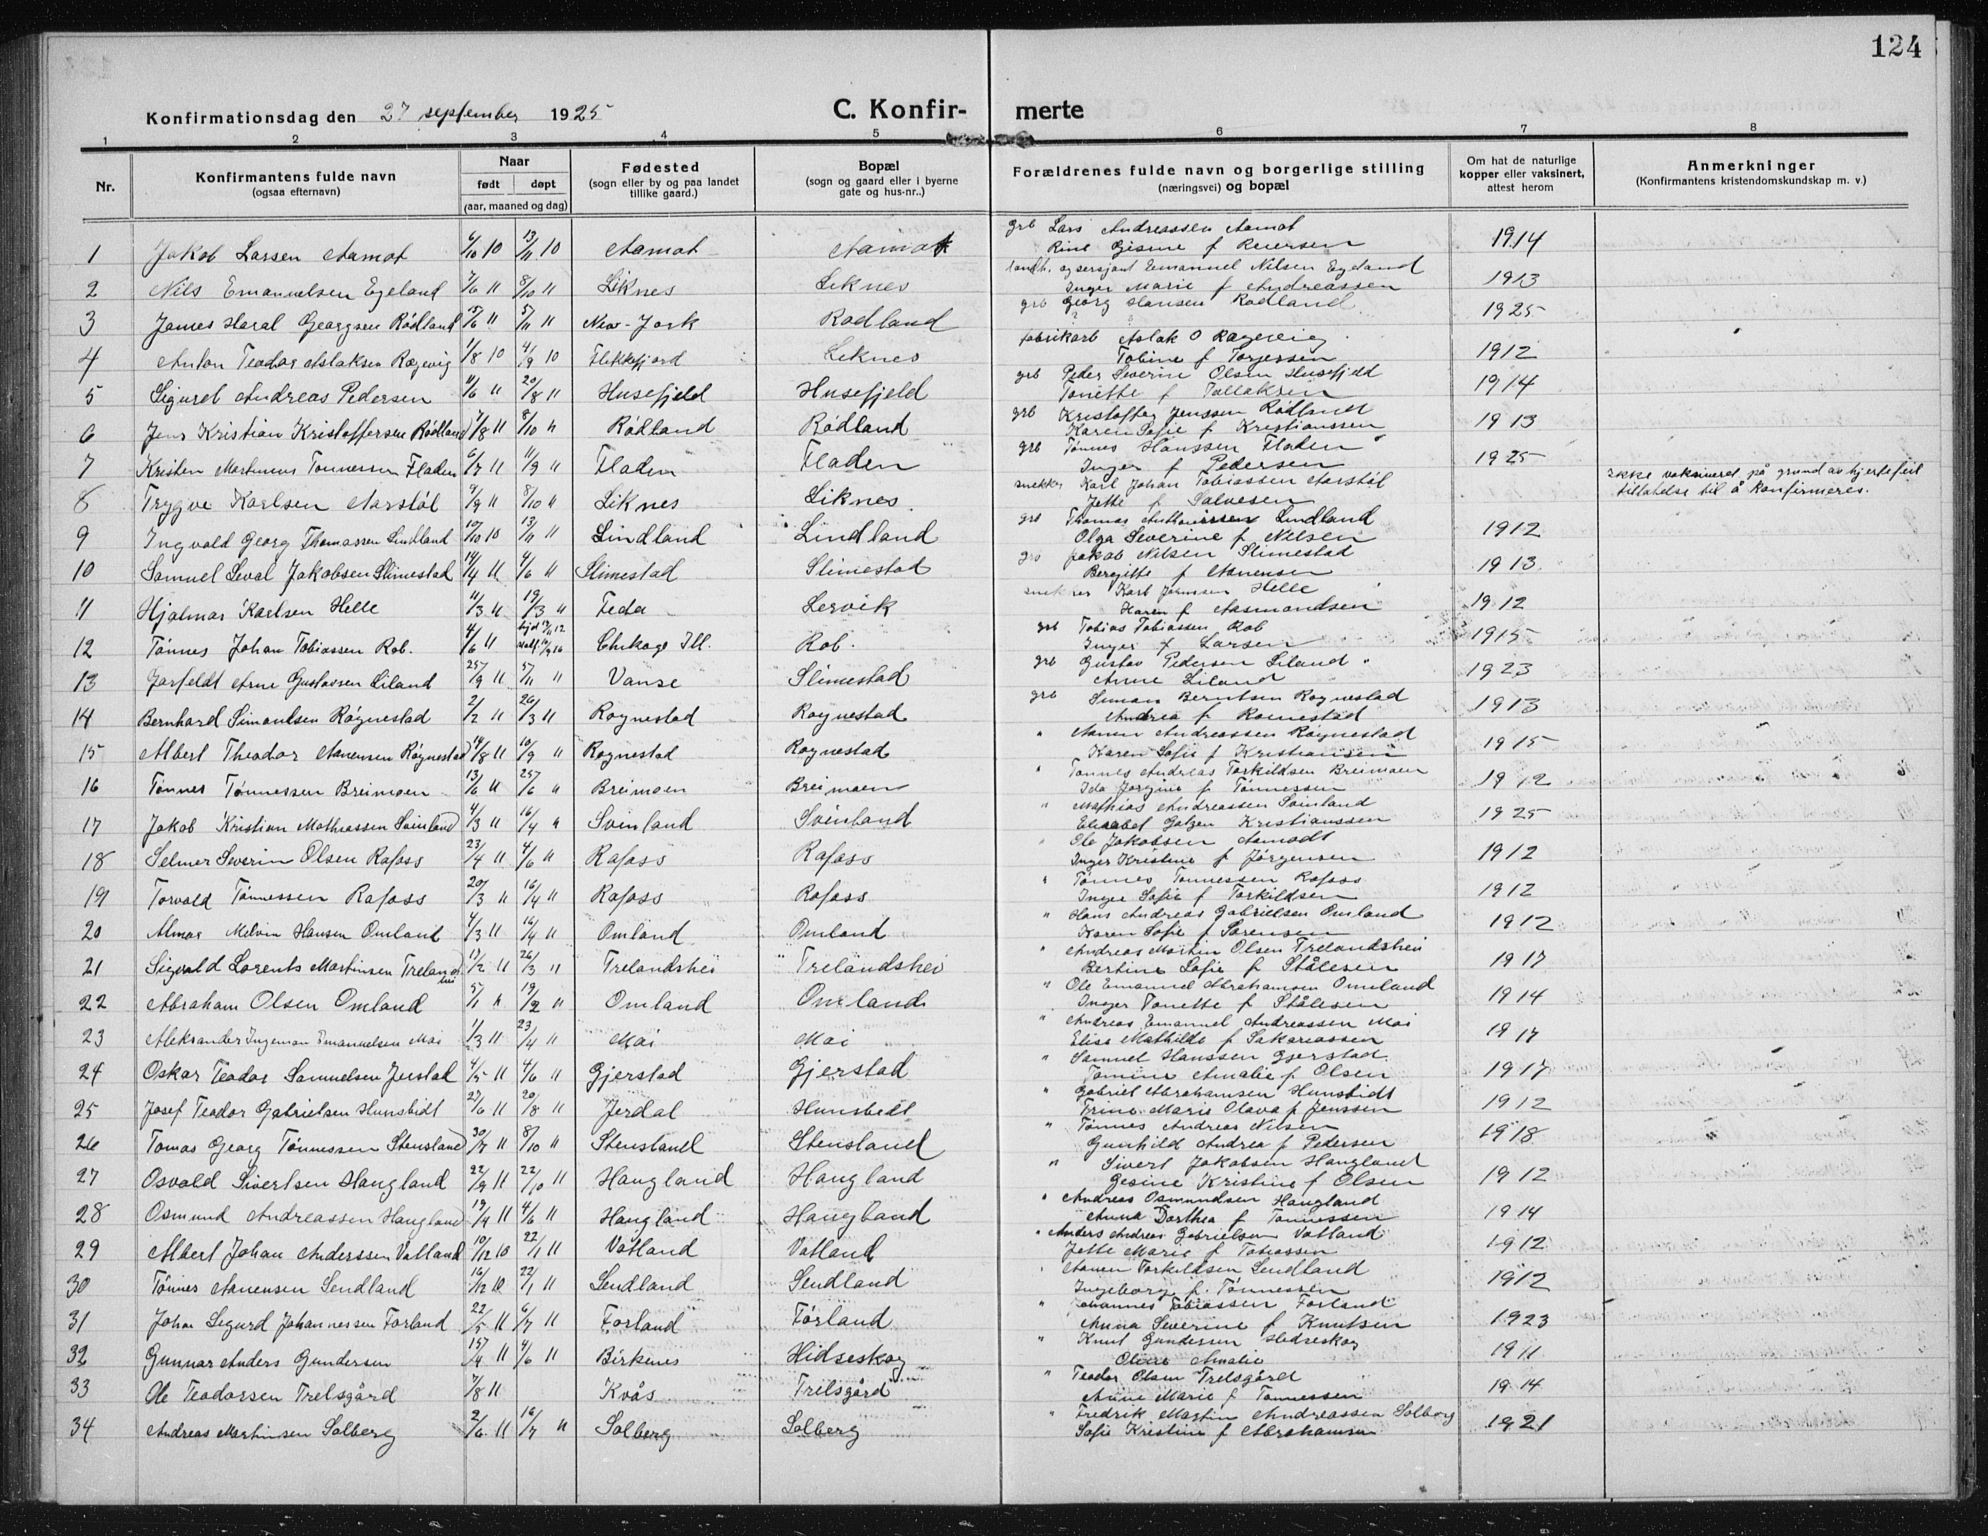 124
Konfirmationsdag den 27 september 1925
C. Konfir- merte
1 2 3 4 5 6 7 8
Nr.
Konfirmantens fulde navn
(ogsaa efternavn)
Naar
født døpt
(aar, maaned og dag)
Fødested
(sogn eller by og paa landet
tillike gaard.)
Bopæl
(sogn og gaard eller i byerne
gate og hus-nr..)
Forældrenes fulde navn og borgerlige stilling
(næringsvei) og bopæl
Om hat de naturlige
kopper eller vaksinert,
attest herom
Anmerkninger
(Konfirmantens kristendomskundskap m. v.)
1 Jakob Larsen Aamot 6/10 10 13/11 10 Aamot Aamot grb Lars Andreassen Aamot 1914
Rine Gisine f Reiersen
2 Nils Emanuelsen Egeland 7/6 11 8/10 11 Liknes Liknes landh. og sersjant Emanuel Nilsen Egeland 1913
Inger Marie f Andreassen
3 James Haral Georgsen Rødland 15/6 11 5/11 11 New-Jork Rødland grb Georg Hansen Rødland 1925
?
4 Anton Teodor Aslaksen Rægevig 1/8 10 4/9 10 Flekkefjord Liknes fabrikarb Aslak O Rægevig 1912
Tobine f Torjessen
5 Sigurd Andreas Pedersen 11/6 11 20/8 11 Husefjeld Husefjeld grb Peder Severin Olsen Husefjeld 1914
Tonette f Tallaksen
6 Jens Kristian Kristoffersen Rødland 7/8 11 8/10 11 Rødland Rødland grb Kristoffer Jenssen Rødland 1913
Karen Sofie f Kristianssen
7 Kristen Martinius Tønnessen Fladen 6/7 11 11/9 11 Fladen Fladen grb Tønnes Hanssen Fladen 1925
Inger f Pedersen
8 Trygve Karlsen Aarstøl 9/9 11 8/10 11 Liknes Liknes. snekker Karl Johan Tobiassen Aarstøl
Jette f Salvesen
ikke vaksineret på grund av hjertefeil
tillatelse til å konfirmeres.
9 Ingvald Georg Thomassen Lindland 10/10 10 13/11 11 Lindland Lindland grb Thomas Anthonissen Lindland 1912
Olga Severine f Nilsen
10 Samuel Seval Jakobsen Slimestad 14/4 11 4/6 11 Slimestad Slimestad grb Jakob Nilsen Slimestad 1913
Bergitte f Aanensen
11 Hjalmar Karlsen Helle 11/3 11 19/3 11 Feda Lervik snekker Karl Jørnssen Helle 1912
Karen f Aasmundsen
12 Tønnes Johan Tobiassen Rob. 4/6 11 Chikago Ill. Rob. grb Tobias Tobiassen Rob 1915
Inger f Larsen
13 Jarfeldt Arne Gustavsen Liland 25/9 11 5/11 11 Vanse Slimestad grb Gustav Pedersen Liland 1923
Arne Liland
14 Bernhard Simonsen Røgnestad 2/2 11 26/3 11 Røgnestad Røgnestad grb Simon Berntsen Røgnestad 1913
Andrea f Romestad
15 Albert Theodor Aanensen Røgnestad 14/8 11 10/9 11 Røgnestad Røgnestad " Aanen Andreassen Røgnestad 1915
Karen Sofie f Kristiansen
16 Tønnes Tønnessen Breimoen 13/6 11 25/6 11 Breimoen Breimoen " Tønnes Andreas Torkildsen Breimoen 1912
Ida Jorgine f Tønnessen
17 Jakob Kristian Mathiassen Svinland 4/3 11 16/4 11 Svinland Svinland " Mathias Andreassen Svinland 1925
Elisabet Kristianssen
18 Selmer Severin Olsen Rafoss 23/4 11 4/6 11 Rafoss Rafoss " Ole Jakobsen Aamodt 1912
Inger Kristine f Jørgensen
19 Torvald Tønnessen Rafoss 20/3 11 16/4 11 Rafoss Rafoss " Tønnes Tønnessen Rafoss 1912
Inger Sofie f Torkildsen
20 Almar Melvin Hansen Omland 4/3 11 16/4 11 Omland Omland " Hans Andreas Gabrielsen Omland 1912
Karen Sofie f Sørensen
21 Sigvald Lorents Martinsen Trelandshei 17/2 11 26/3 11 Trelandshei Trelandshei " Andreas Martin Olsen Trelandshei 1917
Bertine Sofie f Stålesen
22 Abraham Olsen Omland 5/1 11 19/2 11 Omland Omland " Ole Emanuel Abrahamsen Omland 1914
Inger Tonette f Stålesen
23 Aleksander Ingeman Emanuelsen Moi 1/3 11 23/4 11 Moi Moi " Andreas Emanuel Andreassen Moi 1917
Elise Mathilde f Sakariassen
24 Oskar Teodor Samuelsen Jerstad 4/5 11 4/6 11 Gjerstad Gjerstad " Samuel Hanssen Gjerstad 1917
Tomine Amalie f Olsen
25 Josef Teodor Gabrielsen Hunsbedt 27/6 11 20/8 11 Jerdal Hunsbedt " Gabriel Abrahamsen Hunsbedt 1912
Trine Marie Olava f Jenssen
26 Tomas Georg Tønnessen Stensland 30/7 11 8/10 11 Stensland Stensland " Tønnes Andreas Nilsen 1918
Gunhild Andrea f Pedersen
27 Osvald Sivertsen Haugland 22/9 11 22/10 11 Haugland Haugland " Sivert Jakobsen Haugland 1912
Gesine Kristine f Olsen
28 Osmund Andreassen Haugland 19/4 11 4/6 11 Haugland Haugland " Andreas Osmundsen Haugland 1914
Anna Dorthea f Tønnessen
29 Albert Johan Anderssen Vatland 10/12 10 22/1 11 Vatland Vatland " Anders Andreas Gabrielsen Vatland 1912
Jette Marie f Tobiassen
30 Tønnes Aanensen Sendland 16/12 10 22/1 11 Sendland Sendland " Aanen Torkildsen Sendland 1912
Ingeborg f. Tønnessen
31 Johan Sigurd Johannessen Førland 22/5 11 6/7 11 Førland Førland " Johannes Tobiassen Førland 1923
Anna Severine f Knutsen
32 Gunnar Anders Gundersen 15/4 11 4/6 11 Birkenes Hidseskog " Knut Gundersen Hedseskog 1911
Amalie
33 Ole Teodorsen Trelsgård 7/8 11 Kvås Trelsgård " Teodor Olsen Trelsgård 1914
Anne Marie f Tønnessen
34 Andreas Martinsen Solberg 2/6 11 16/7 11 Solberg Solberg " Fredrik Martin Andreassen Solberg 1921
Sofie Kristine f Abrahamsen